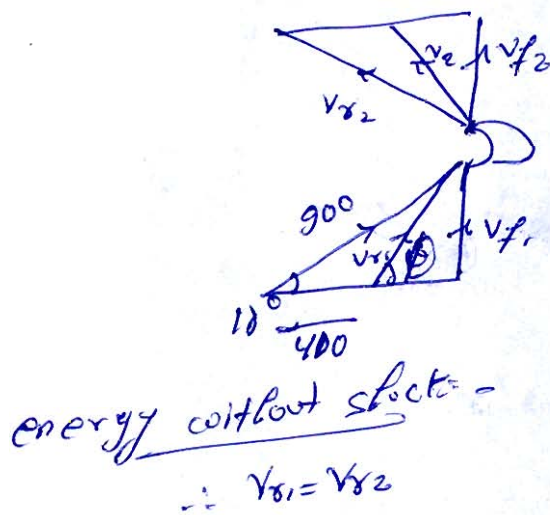 V₂ V_f₂
V_r₂
900
V_r₁ θ V_f₁
400
energy without shock = -
∴ V_r₁ = V_r₂